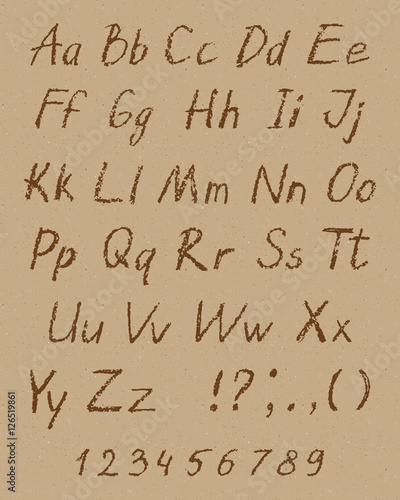 Aa Bb Cc Dd Ee
Ff Gg Hh Ii Jj
Kk Ll Mm Nn Oo
Pp Qq Rr Ss Tt
Uu Vv Ww Xx
Yy Zz !?:;.,()
1 2 3 4 5 6 7 8 9
126519861
Adobe Stock